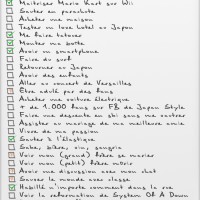 Maîtriser Mario Kart sur Wii
Sauter en parachute
Acheter une maison
Tester un love hotel au Japon
Me faire tatouer
Monter ma boîte
Avoir un smartphone
Faire du surf
Retourner au Japon
Avoir des enfants
Aller au concert de Versailles
Être adulé par des fans
Acheter une voiture électrique
+ de 1.000 fans sur FB de Japan Style
Faire une descente au ski sans me vautrer
Assister au mariage de ma meilleure amie
Vivre de ma passion
Sauter à l'élastique
Sake, bière, vin, sangria
Voir mon (grand) frère se marier
Voir mon (petit) frère
Avoir une discussion avec mon chat
Sauver le monde avec classe
Habillé n'importe comment dans la rue
Voir la reformation de System Of A Down